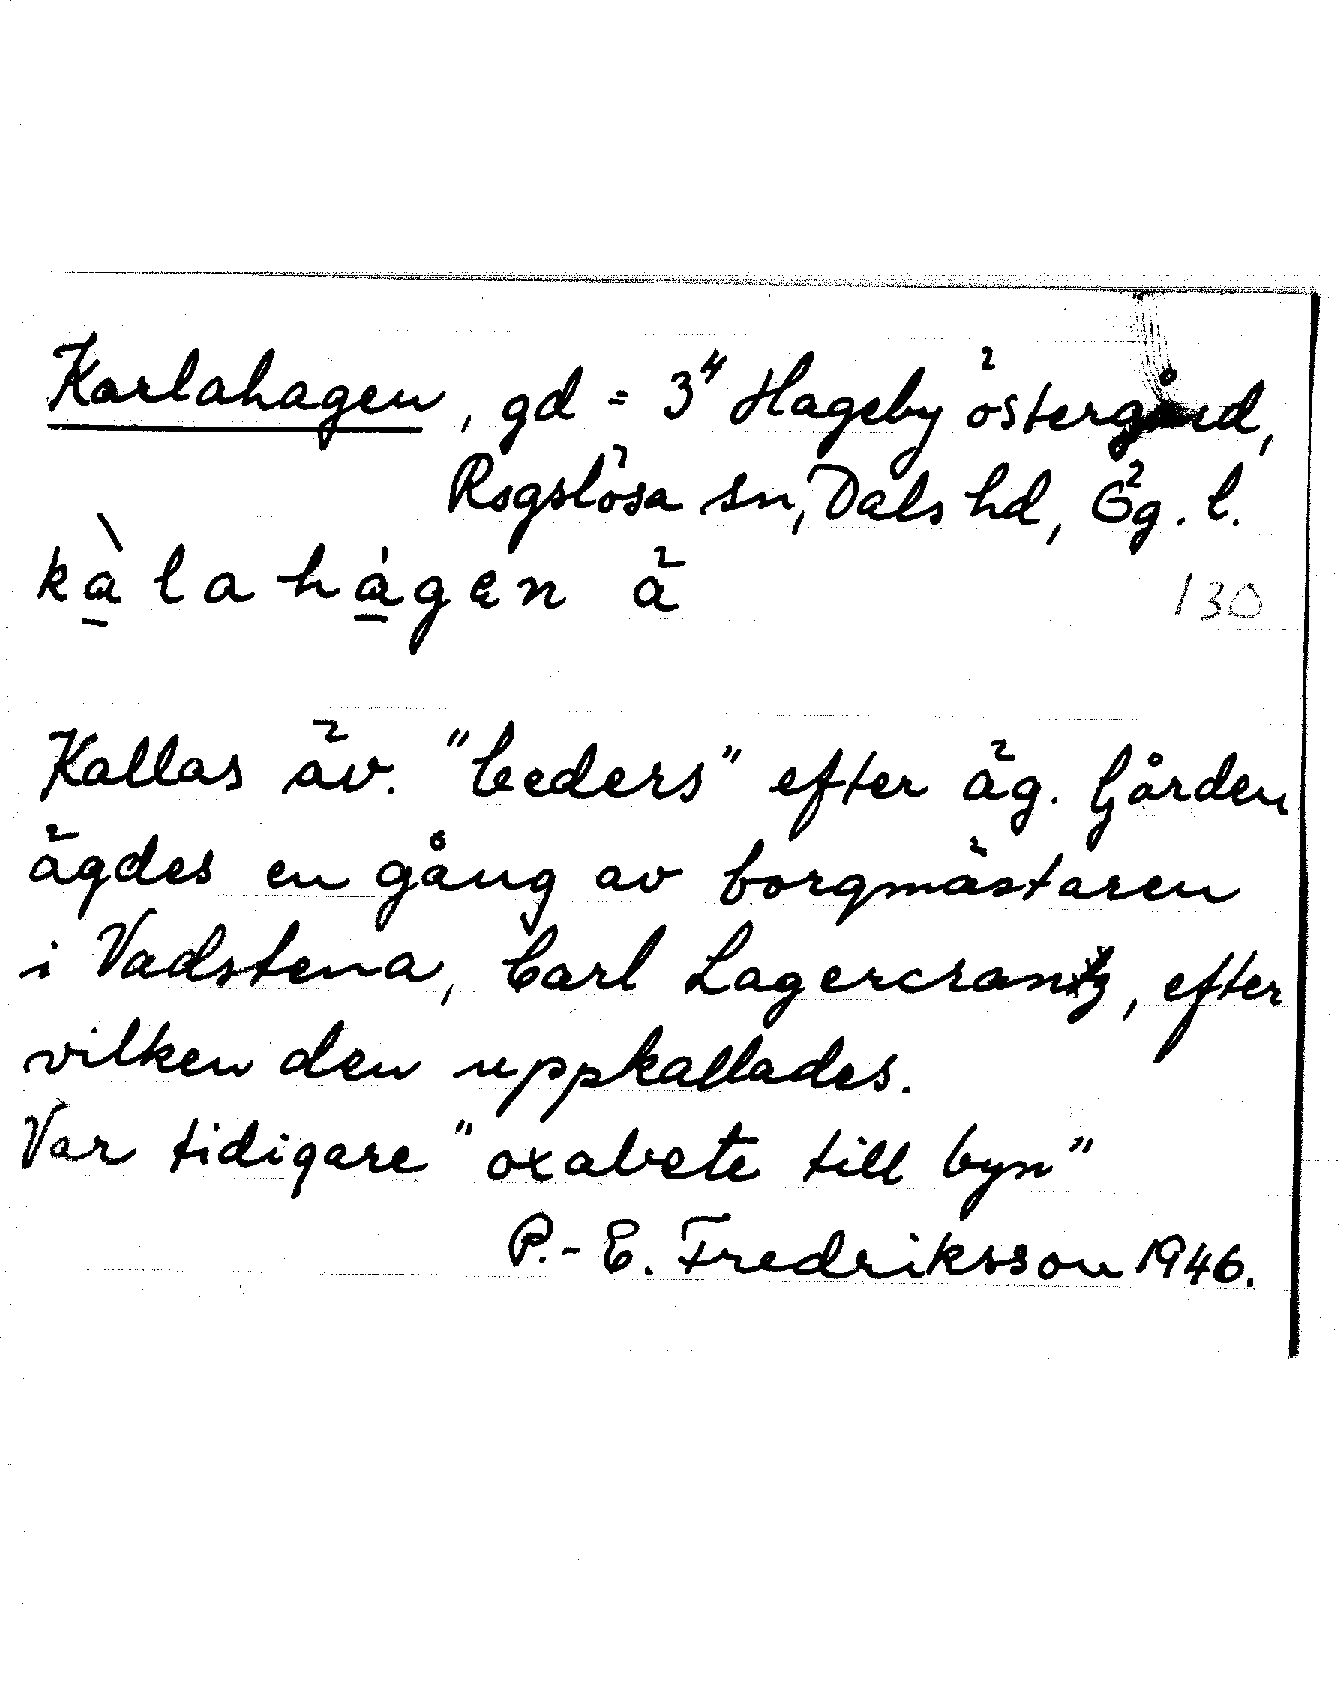 Karlahagen, gd = 3⁴ Hageby östergård,
Rogslösa sn, Dals hd, Ög. l.
kàlahágen ä
130
Kallas äv. "Ceders" efter äg. Gården
ägdes en gång av borgmästaren
i Vadstena, Carl Lagercrantz, efter
vilken den uppkallades.
Var tidigare "oxabete till byn"
P.-E. Fredriksson 1946.